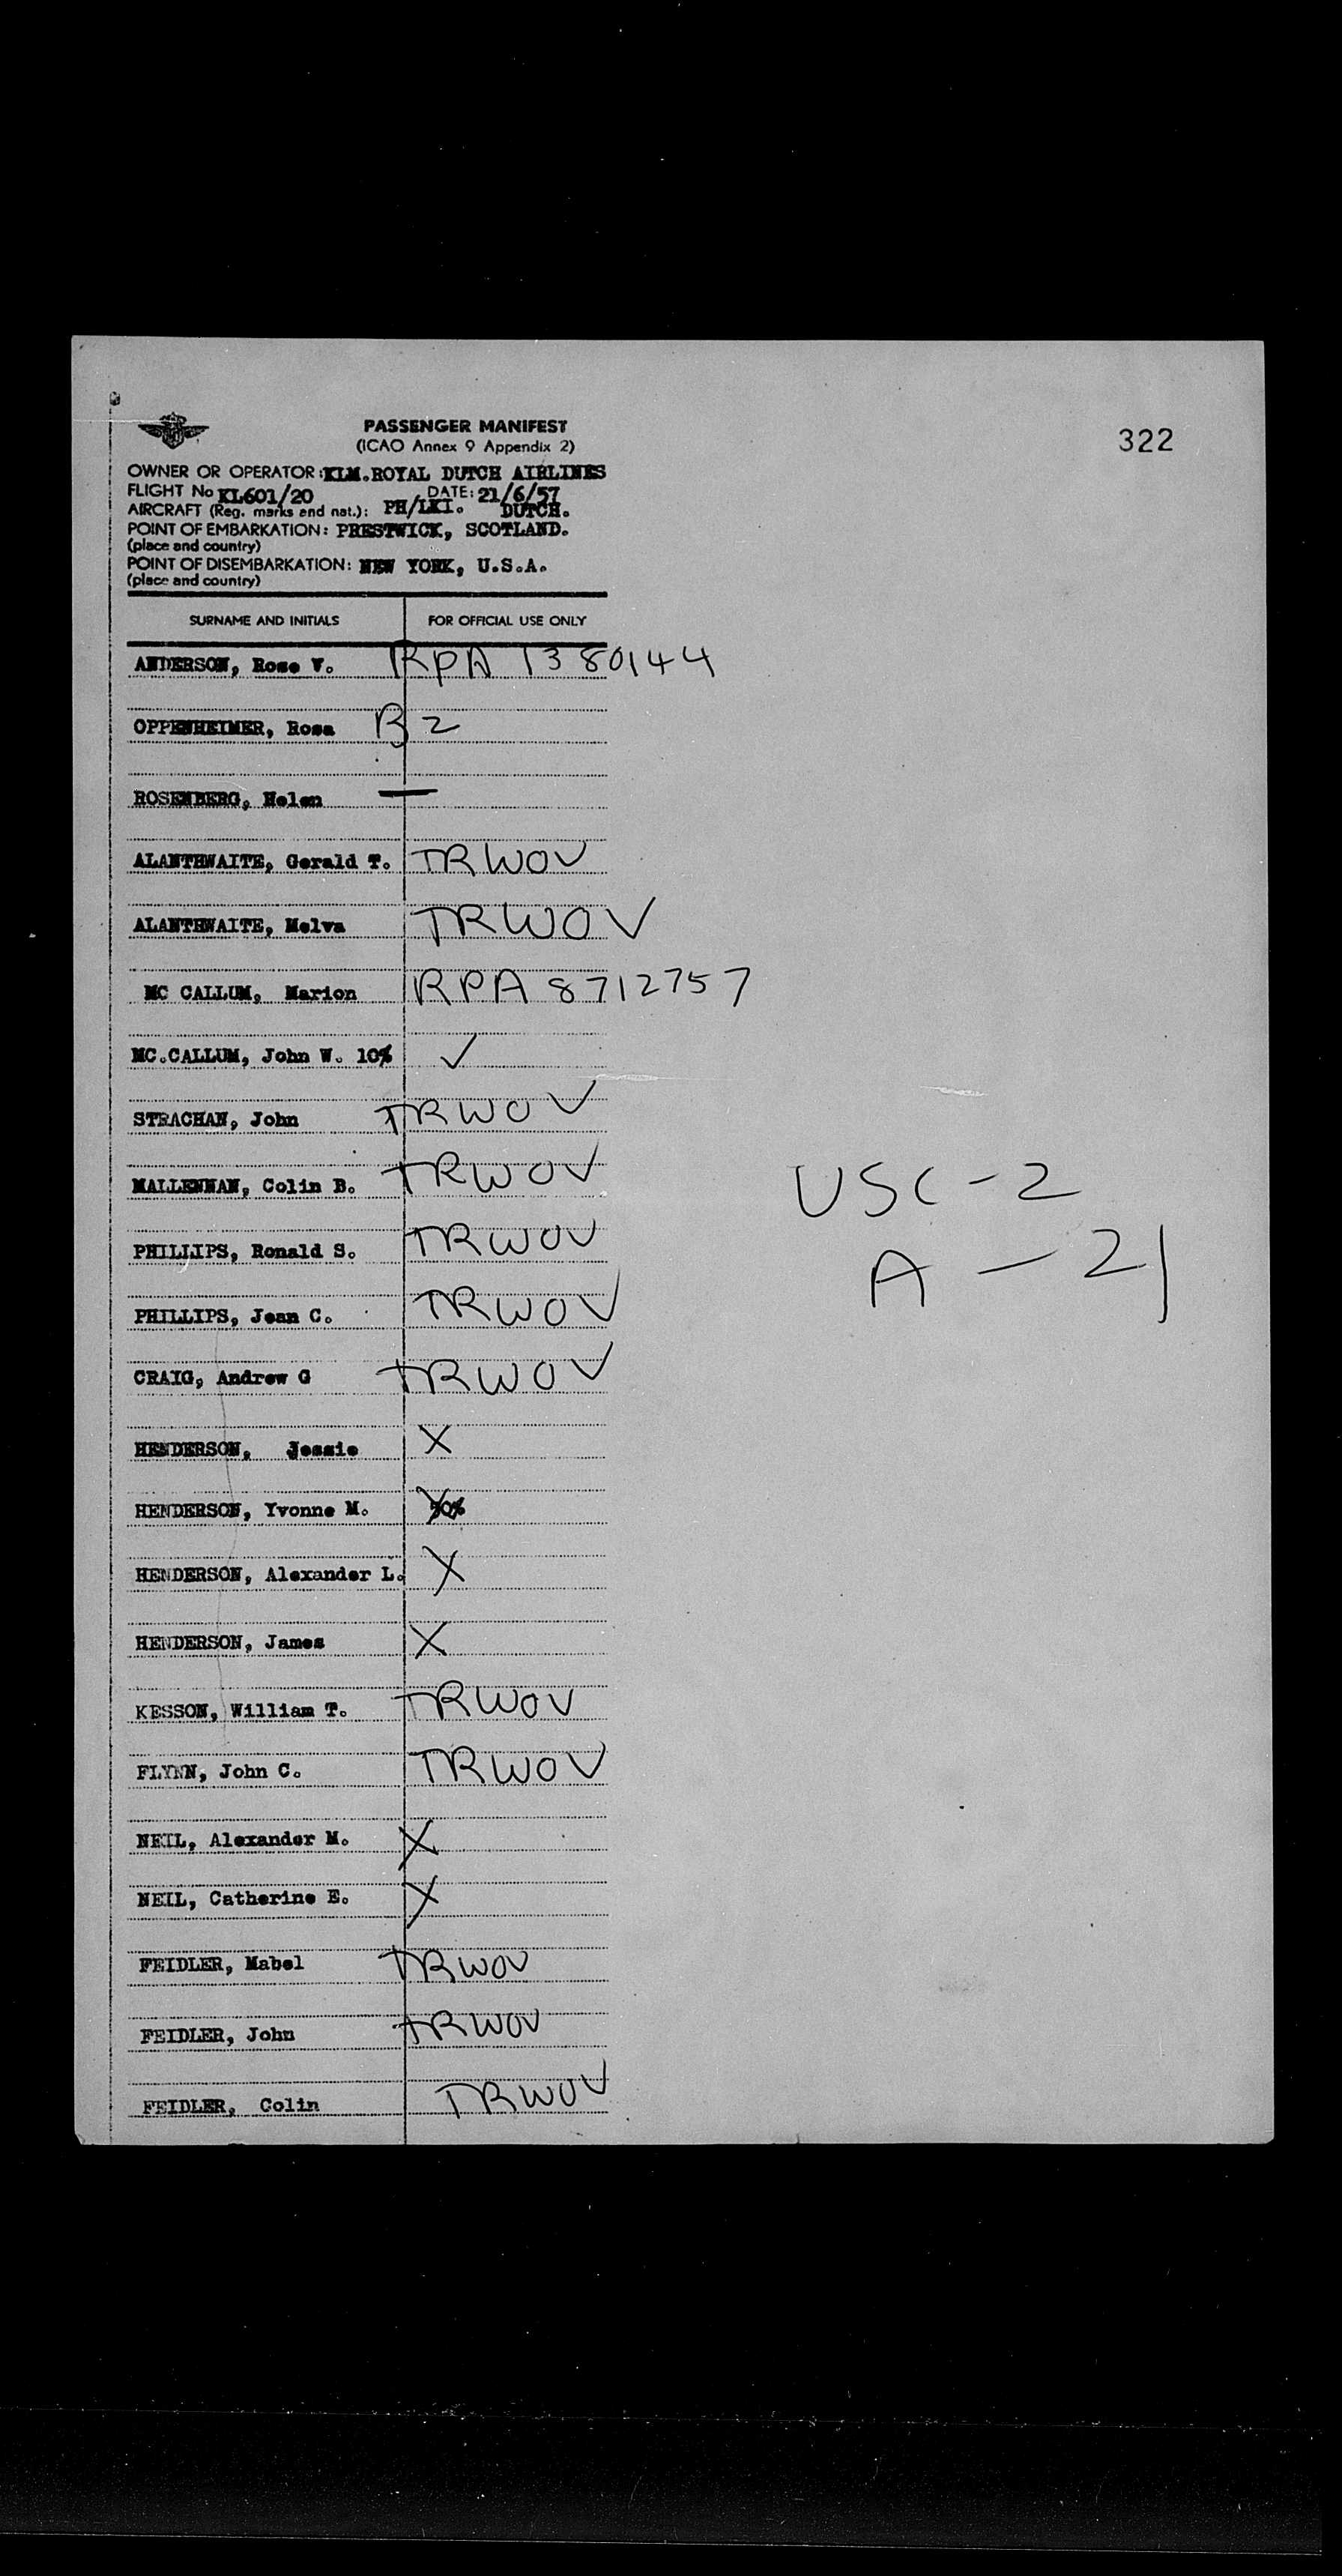 PASSENGER MANIFEST
(ICAO Annex 9 Appendix 2)
322
OWNER OR OPERATOR: KLM. ROYAL DUTCH AIRLINES
FLIGHT No KL601/20 DATE: 21/6/57
AIRCRAFT (Reg. marks and nat.): PH/LKI. DUTCH.
POINT OF EMBARKATION: PRESTWICK, SCOTLAND.
(place and country)
POINT OF DISEMBARKATION: NEW YORK, U.S.A.
(place and country)
SURNAME AND INITIALS FOR OFFICIAL USE ONLY
ANDERSON, Rose V. RPA 1380144
OPPENHEIMER, Rosa B2
ROSENBERG, Helen —
ALANTHWAITE, Gerald T. TRWOV
ALANTHWAITE, Melva TRWOV
MC CALLUM, Marion RPA 8712757
MC.CALLUM, John W. 10% ✓
STRACHAN, John TRWOV
MALLENNAN, Colin B. TRWOV
USC - 2
PHILLIPS, Ronald S. TRWOV
A — 21
PHILLIPS, Jean C. TRWOV
CRAIG, Andrew G TRWOV
HENDERSON, Jessie X
HENDERSON, Yvonne M. 50% X
HENDERSON, Alexander L. X
HENDERSON, James X
KESSON, William T. TRWOV
FLYNN, John C. TRWOV
NEIL, Alexander M. X
NEIL, Catherine E. X
FEIDLER, Mabel TRWOV
FEIDLER, John TRWOV
FEIDLER, Colin TRWOV